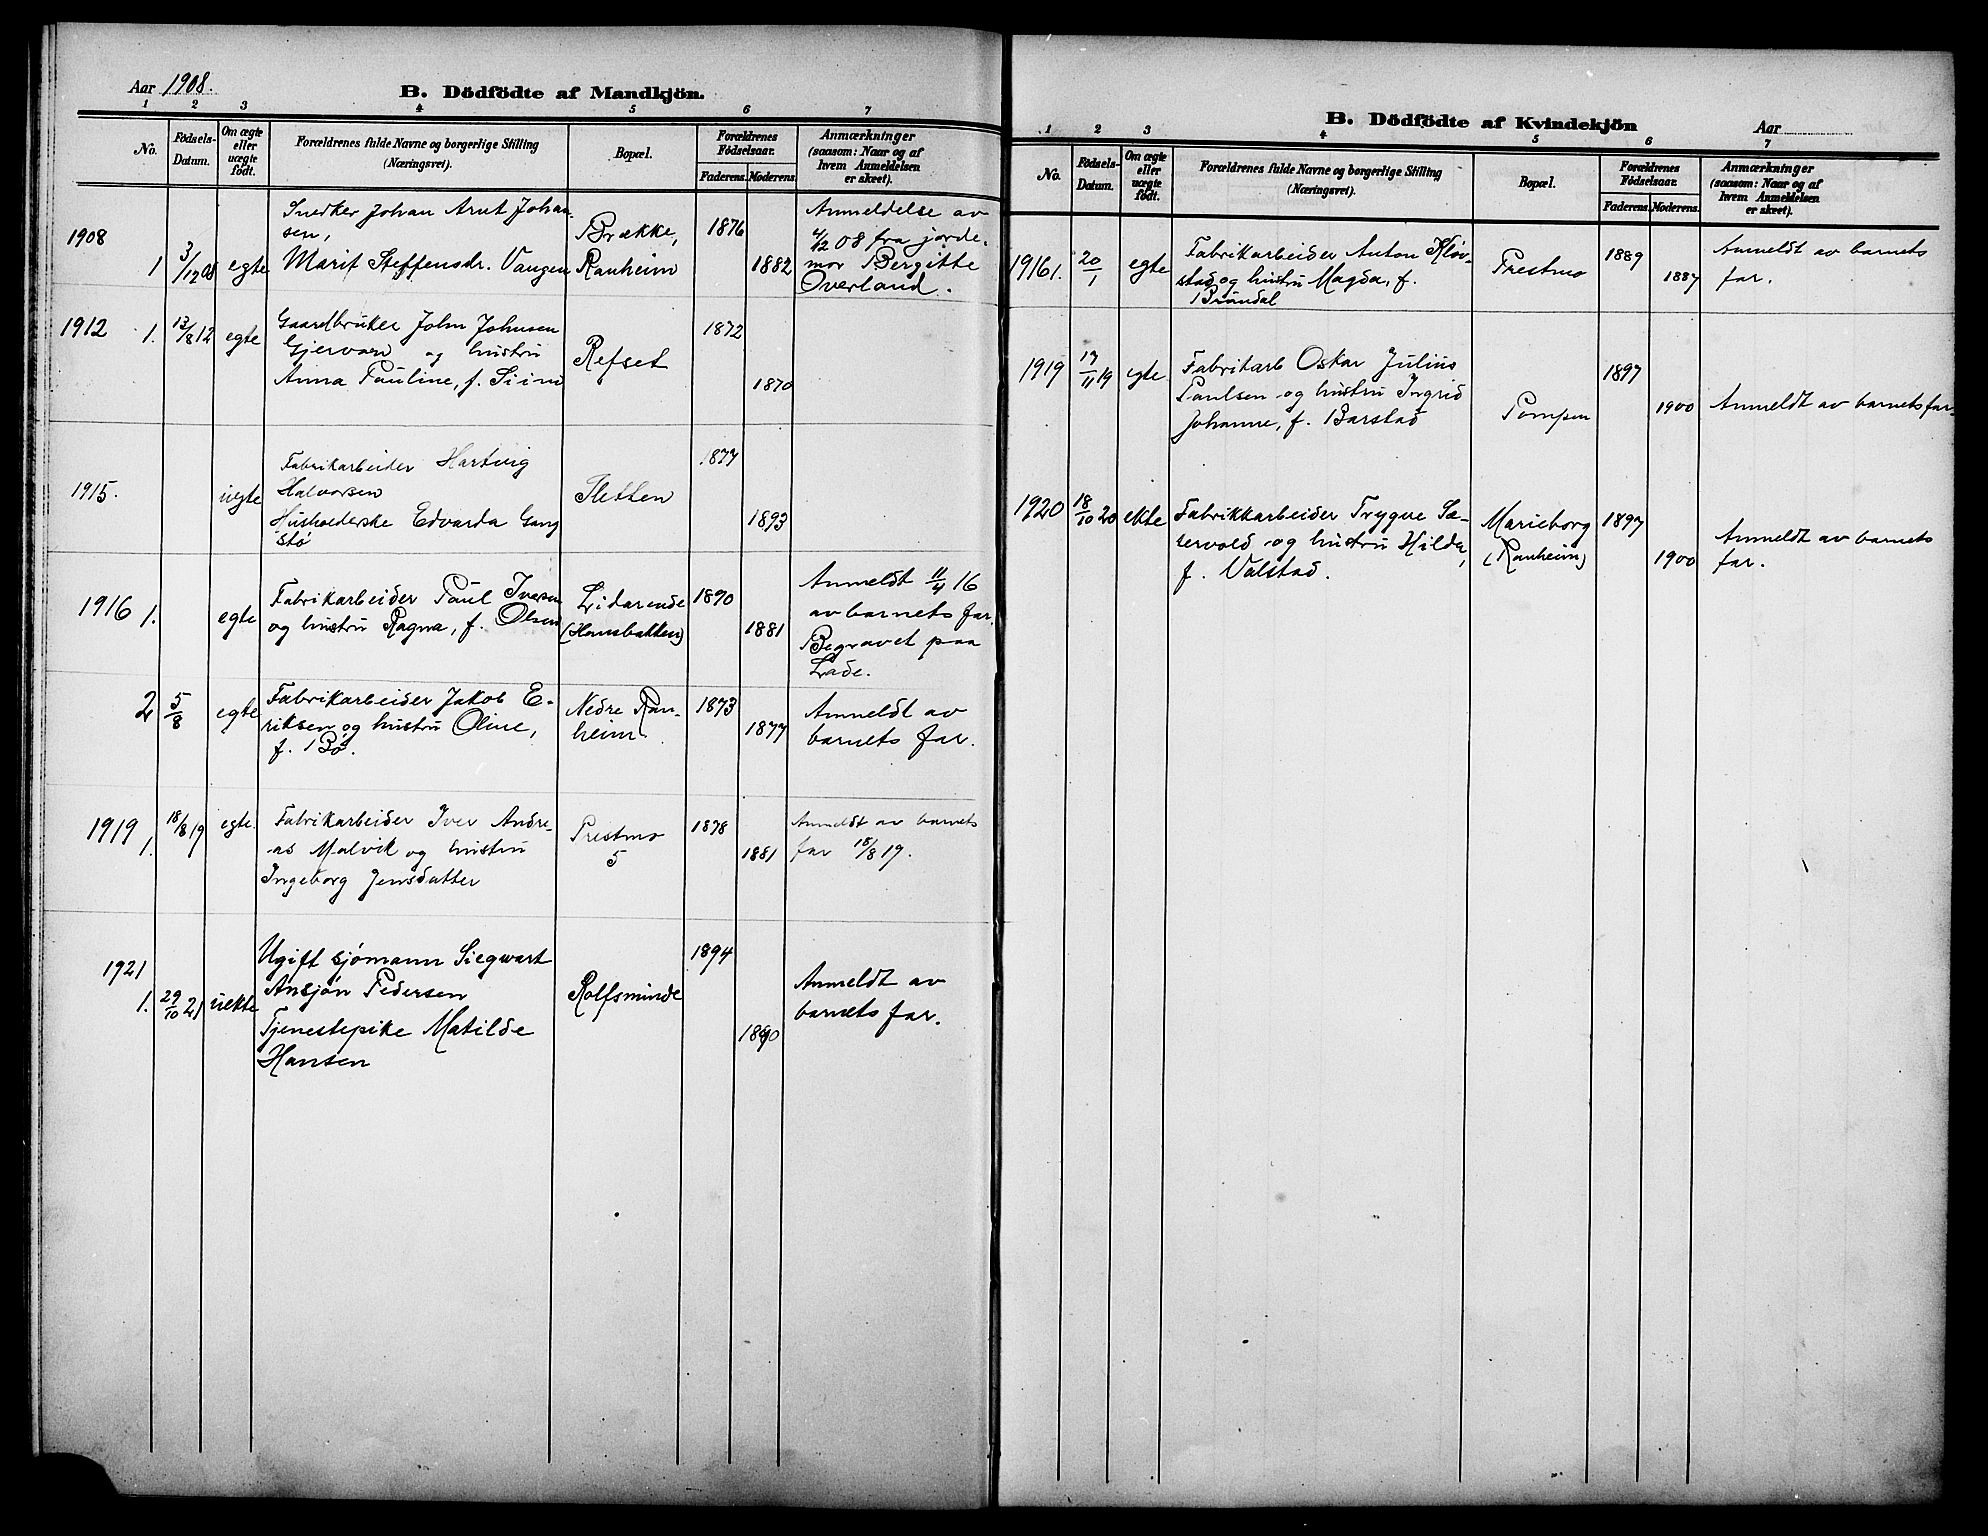 Aar 1908.
B. Dödfödte af Mandkjön.
1 2 3 4 5 6 7
No.
Födsels-Datum.
Om ægte eller uægte födt.
Forældrenes fulde Navne og borgerlige Stilling (Næringsvei).
Bopæl.
Forældrenes Födselsaar.
Faderens. Moderens.
Anmærkninger
(saasom: Naar og af
hvem Anmeldelsen
er skeet).
1908
1 3/12 08 egte
Snedker Johan Arnt Johan-
sen,
Marit Steffensdr. Vangen
Brække,
Ranheim
1876
1882
Anmeldelse av
4/12 08 fra jorde-
mor Bergitte
Overland.
1912 1. 13/8 12 egte
Gaardbruker John Johnsen
Gjervan og hustru
Anna Pauline, f.
Refset
1872
1870
1915. uegte
Fabrikarbeider Hartvig
Halvorsen
Husholderske Edvarda Gang
stø
Sletten
1877
1893
1916 1. egte
Fabrikarbeider Paul Iversen
og hustru Ragna, f. Olsen
Lidarende
(Hansbakken)
1890
1881
Anmeldt 11/4 16
av barnets far.
Begravet paa
Lade.
2 5/8 egte
Fabrikarbeider Jakob E-
riksen og hustru Oline,
f. Bø.
Nedre Ran-
heim
1873
1877
Anmeldt av
barnets far.
1919 1. 18/8 19 egte.
Fabrikarbeider Iver Andre-
as Malvik og hustru
Ingeborg Jensdatter
Prestmo
5
1878
1881
Anmeldt av barnets
far 18/8 19.
1921
1. 29/10 21 uekte
Ugift sjømann Siegwart
Ansjøn Pedersen
Tjenestepike Matilde
Hansen
Rolfsminde
1894
Anmeldt av
barnets far.
B. Dödfödte af Kvindekjön
Aar
1 2 3 4 5 6 7
No.
Födsels-Datum.
Om ægte eller uægte födt.
Forældrenes fulde Navne og borgerlige Stilling (Næringsvei).
Bopæl.
Forældrenes Födselsaar.
Faderens. Moderens.
Anmærkninger
(saasom: Naar og af
hvem Anmeldelsen
er skeet).
1916 1. 20/1 egte
Fabrikarbeider Anton Kløv-
stad og hustru Magda, f.
Brøndal
Prestmo
1889
1887
Anmeldt av barnets
far.
1919 17/11 19 egte
Fabrikarb Oskar Julius
Paulsen og hustru Ingrid
Johanne, f. Barstad
Pompen
1897
1900
Anmeldt av barnets far.
1920 18/10 20 ekte
Fabrikkarbeider Trygve Sæ-
tervold og hustru Hilda,
f. Valstad.
Marieborg
(Ranheim)
1897
1900
Anmeldt av barnets
far.